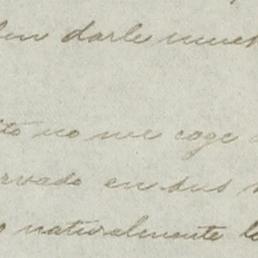 en darle nues
ito no me coge
rvado en sus
naturalmente lo